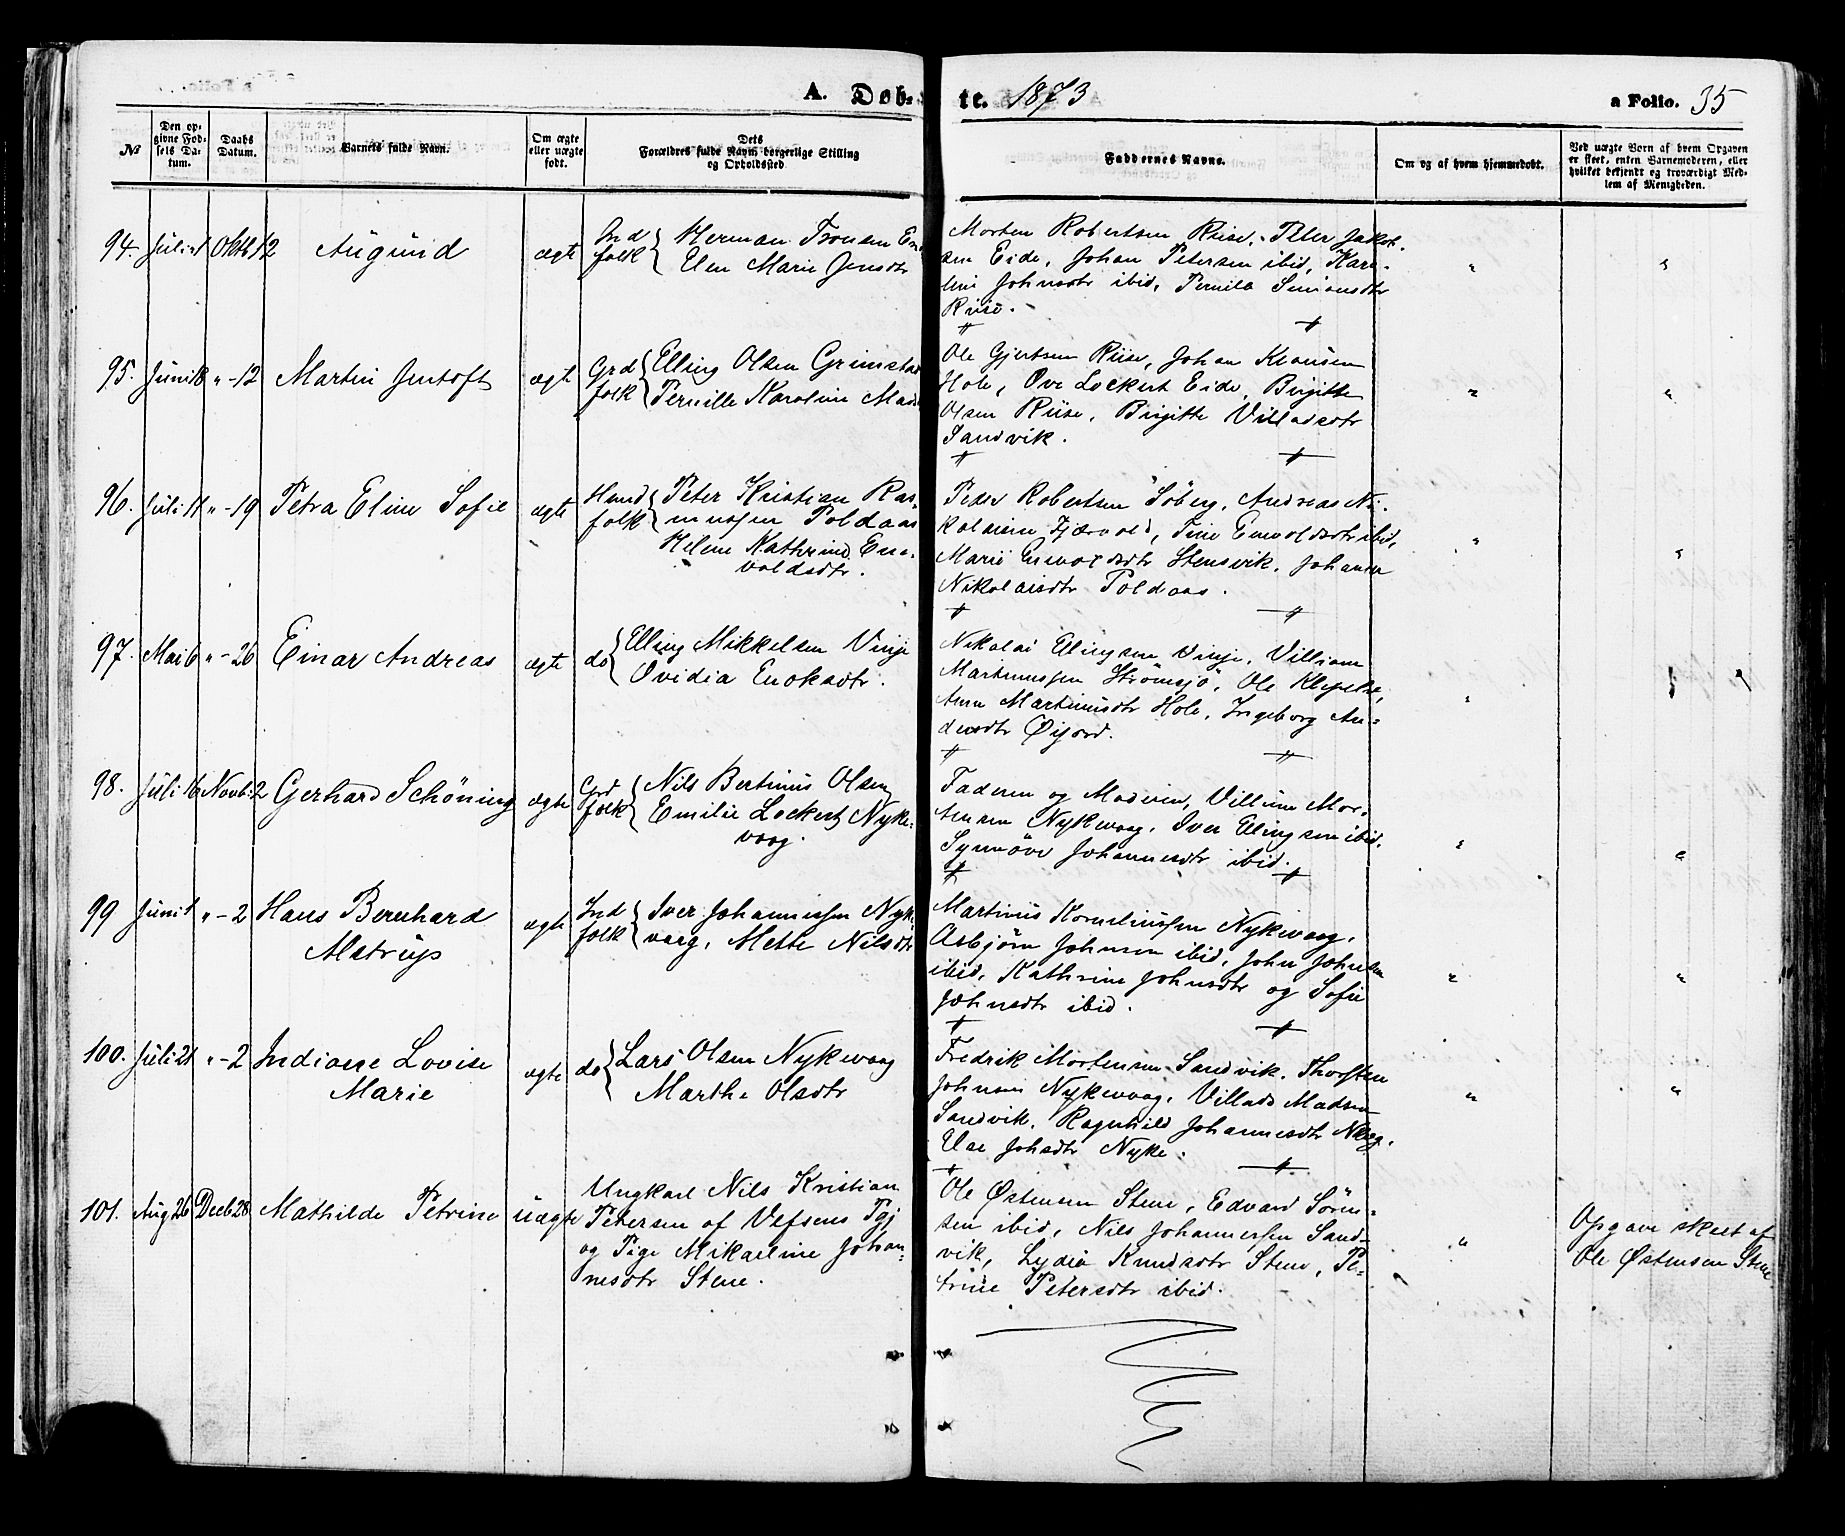 A. Døb-
te. 1873
a Folio. 35
№
Den op-
givne Fød-
sels Da-
tum.
Daabs
Datum.
Barnets fulde Navn.
Om ægte
eller uægte
født.
Dets
Forældres fulde Navn borgerlige Stilling
og Opholdssted.
Faddernes Navne.
Om og af hvem hjemmedøbt.
Ved uægte Børn af hvem Opgaven
er skeet, enten Barnemoderen, eller
hvilket bekjendt og troværdigt Med-
lem af Menigheden.
94. Juli 1 Oktb 12 Augund ægte Ind
folk
Herman Tronsen
Elen Marie Jensdtr
Morten Robertsen Riise, Peter Jakob-
sen Eide, Johan Petersen ibid, Karo-
line Johnsdtr ibid, Pernila Simonsdtr
Riise.
95. Juni 18 "-12 Martin Jentoft ægte Grd
folk
Elling Olsen Grimstad
Pernille Karoline Mads
Ole Gjertsen Riise, Johan Klausen
Hole, Ove Lockert Eide, Birgitte
Olsen Riise, Birgitte Villadsdtr
Sandvik.
96. Juli 11 "-19 Petra Eline Sofie ægte Huus
folk
Peter Kristian Ras-
mussen Poldaas
Helene Kathrine Ene-
voldsdtr.
Peder Robertsen Söberg, Andreas Ni-
kolaisen Fjærvold, Tine Enevoldsdtr ibid,
Marie Enevoldsdtr Stensvik, Johanna
Nikolaisdtr Poldaas.
97. Mai 6 "-26 Einar Andreas ægte do
Elling Mikkelsen Vinje
Ovidia Enoksdtr.
Nikolai Ellingsen Vinje, Villiam
Martinussen Strömsjö, Ole
Anna Martinusdtr Hole, Ingeborg An-
dersdtr Øijord.
98. Juli 16 Novb. 2 Gerhard Schöning ægte Grd
folk
Nils Bertinus Olsen
Emilie Lockert Nyke-
vaag.
Faderen og Moderen, Villum Mor-
tensen Nykevaag, Iver Ellingsen ibid,
Synnöve Johannesdtr ibid.
99 Juni 1 "-2 Hans Bernhard
Astrup
ægte Ind
folk
Iver Johannessen Nyk-
vaag, Mette Nilsdtr
Martinus Korneliussen Nykevaag,
Asbjörn Johnsen ibid, John Johnsen
ibid, Kathrine Johnsdtr og Sofie
Johnsdtr ibid.
100. Juli 21 "-2 Indiane Lovise
Marie
ægte do
Lars Olsen Nykevaag
Marthe Olsdtr
Fredrik Mortensen Sandvik, Thorsten
Johnsen Nykevaag, Villads Madsen
Sandvik, Ragnhild Johannesdtr Nvaag,
Else Johsdtr Nyke.
101. Aug 26 Decb 28 Mathilde Petrine uægte
Ungkarl Nils Kristian
Petersen af Vefsens Pgj
og Pige Mikaeline Johan-
nesdtr Stene.
Ole Østensen Stene, Edvard Sören-
sen ibid, Nils Johannessen Sand-
vik, Lydia Knudsdtr Stene, Pe-
trine Petersdtr ibid.
Opgave skeet af
Ole Østensen Stene